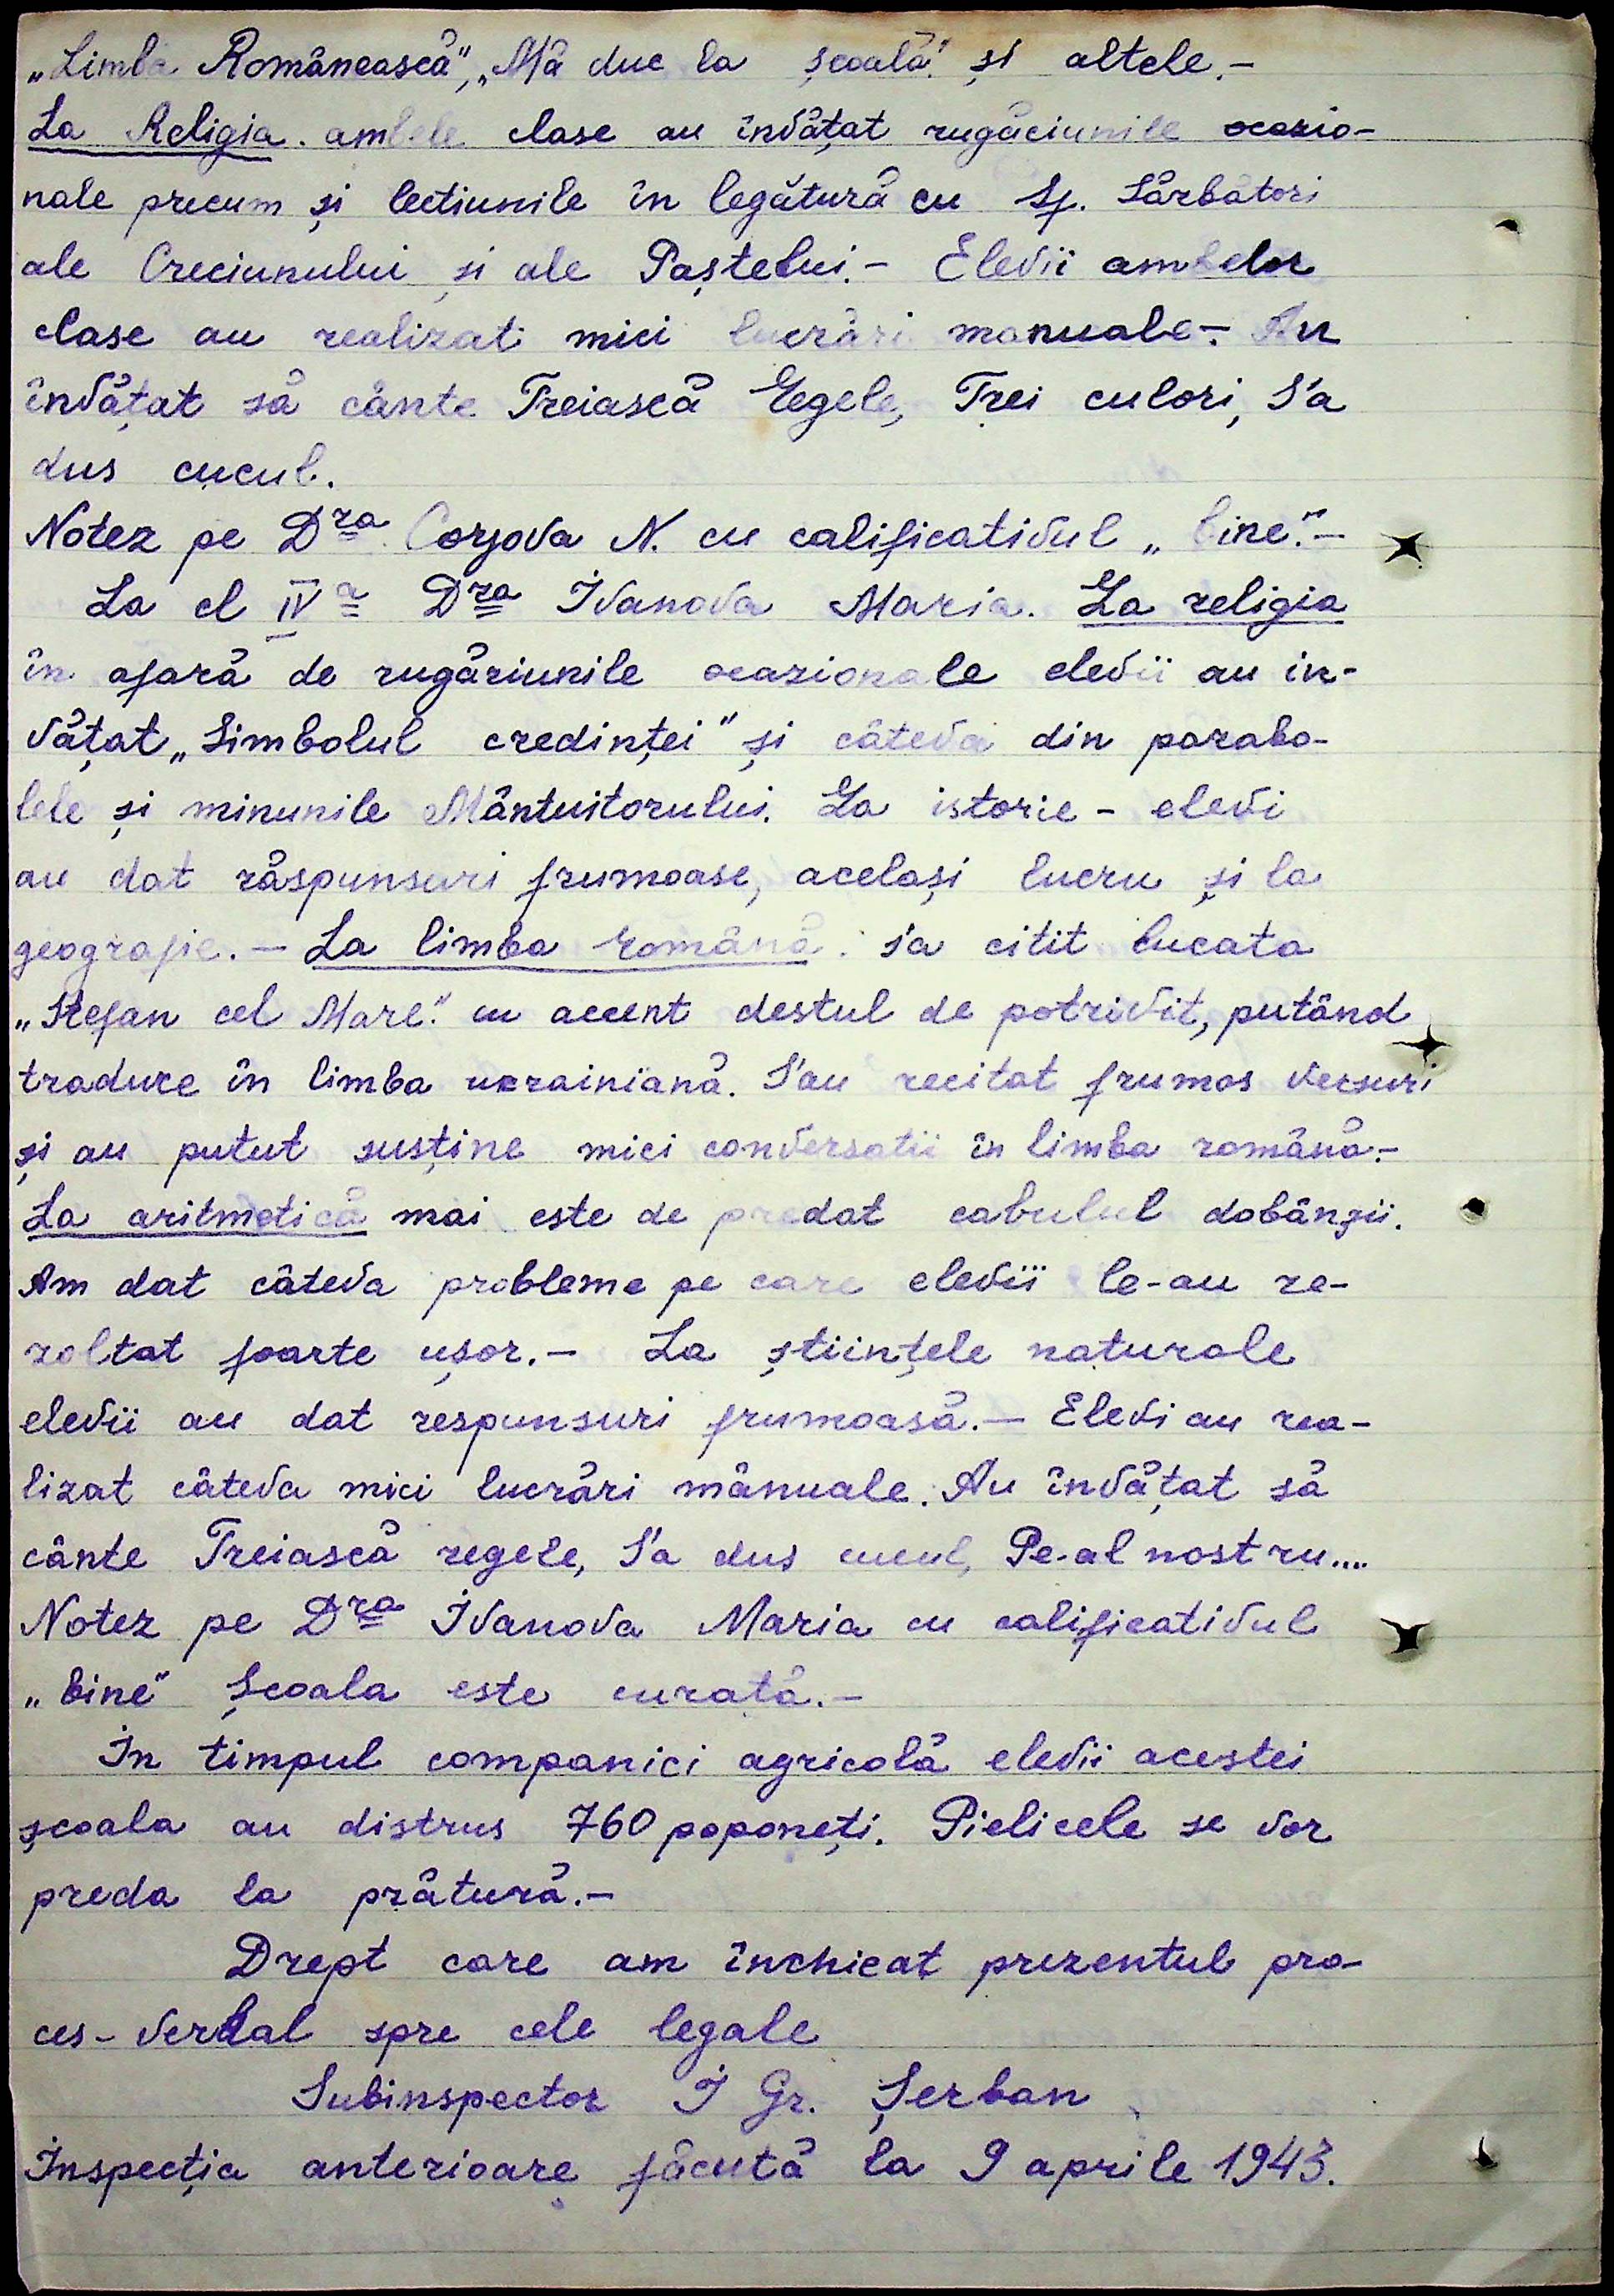 „Limba Românească”, „Mă duc la școală” și altele.-
La Religia. ambele clase au învățat rugăciunile ocazio-
nale precum și lectiunile în legătură cu Sf. Sărbători
ale Creciunului și ale Paștelui.- Elevii ambelor
clase au realizat mici lucrări manuale.- Au
învățat să cânte Treiască Regele, Trei culori, S'a
dus cucul.
Notez pe Dra Corsova N. cu calificativul „bine”.-
La cl IVa Dra Ivanova Maria. La religia
în afară de rugăriunile ocazionale elevii au in-
vățat „Simbolul credinței” și câteva din parabo-
lele și minunile Mântuitorului. La istorie - elevi
au dat răspunsuri frumoase, același lucru și la
geografie.- La limba română. s'a citit bucata
„Stefan cel Mare” cu accent destul de potrivit, putând
traduce în limba ukrainiană. S'au recitat frumos versuri
și au putut susține mici conversatii în limba română.-
La aritmetică mai este de predat cabulul dobânzii.
Am dat câteva probleme pe care elevii le-au re-
zoltat foarte ușor.- La științele naturale
elevii au dat respunsuri frumoasă.- Elevi au rea-
lizat câteva mici lucrări mânuale. Au învățat să
cânte Treiască regele, S'a dus cucul, Pe-al nostru....
Notez pe Dra Ivanova Maria cu calificativul
„bine” Școala este curată.-
In timpul companici agricolă elevii acestei
școala au distrus 760 poponeți. Pielicele se vor
preda la prătură.-
Drept care am închicat prezentul pro-
ces-verbal spre cele legale
Subinspector I Gr. Șerban
Inspecția anterioare făcută la 9 aprile 1943.